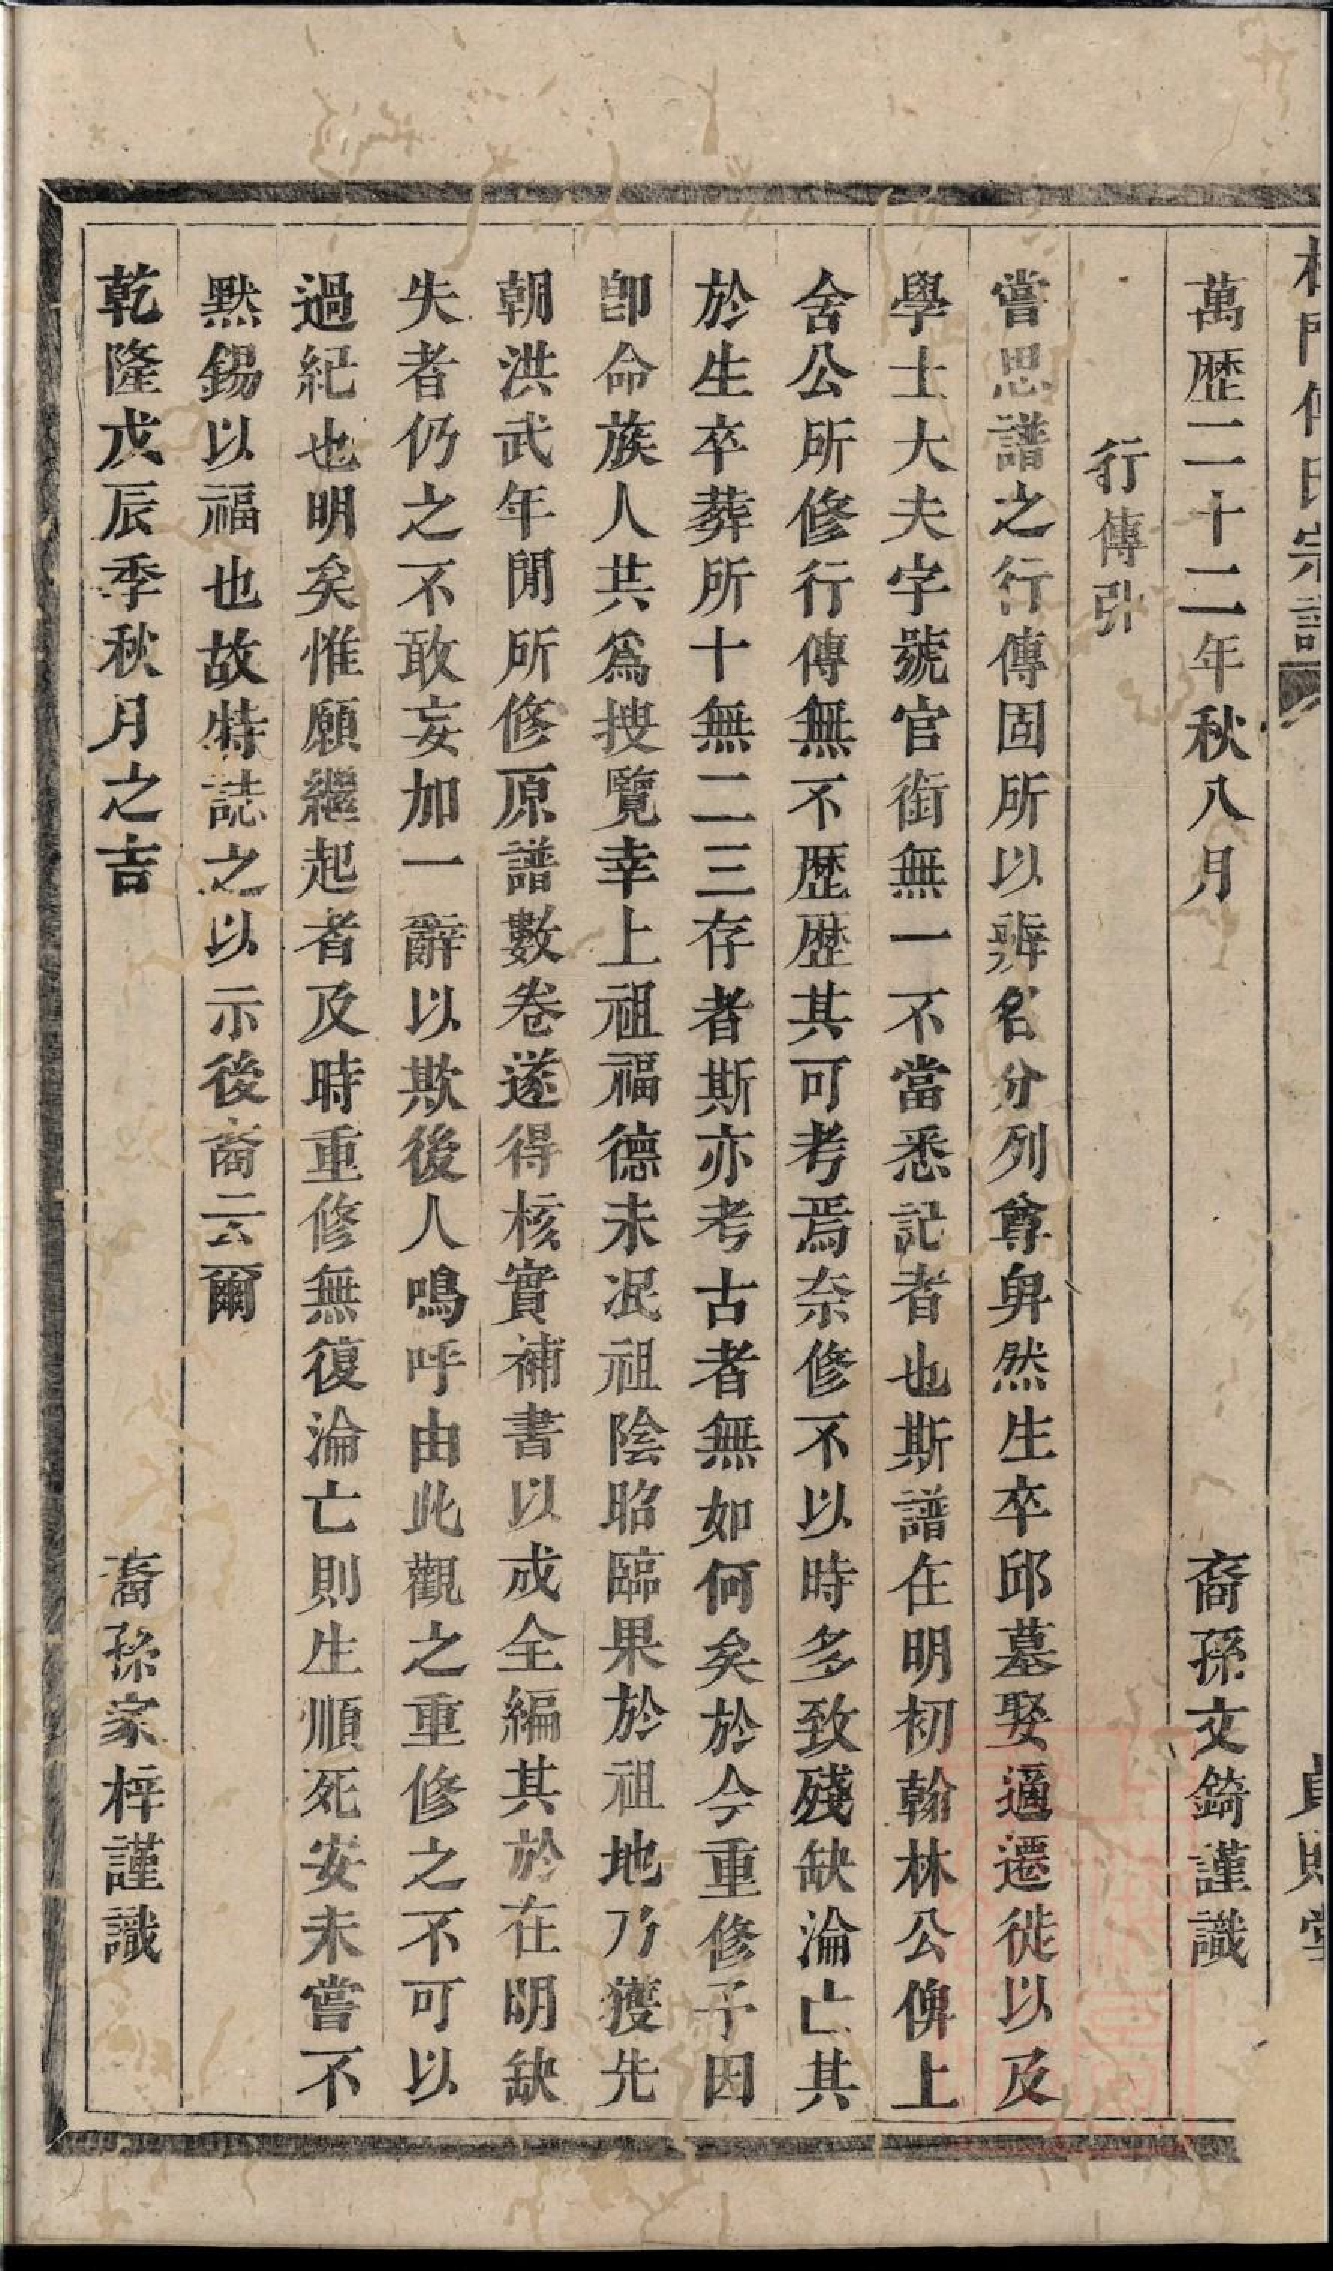 萬歷二十二年秋八月　裔孫文錡謹識
行傳引
嘗思譜之行傳固所以辨名分列尊卑然生卒邱墓娶適遷徙以及
學士大夫字號官銜無一不當悉記者也斯譜在明初翰林公俾上
舍公所修行傳無不歷歷其可考焉奈修不以時多致殘缺淪亡其
於生卒葬所十無二三存者斯亦考古者無如何矣於今重修予因
卽命族人共爲搜覽幸上祖福德未泯祖陰昭臨果於祖地乃獲先
朝洪武年閒所修原譜數卷遂得核實補書以成全編其於在明缺
失者仍之不敢妄加一辭以欺後人鳴呼由此觀之重修之不可以
過紀也明矣惟願繼起者及時重修無復淪亡則生順死安未嘗不
黙錫以福也故特誌之以示後裔云爾
乾隆戊辰季秋月之吉　裔孫家梓謹識